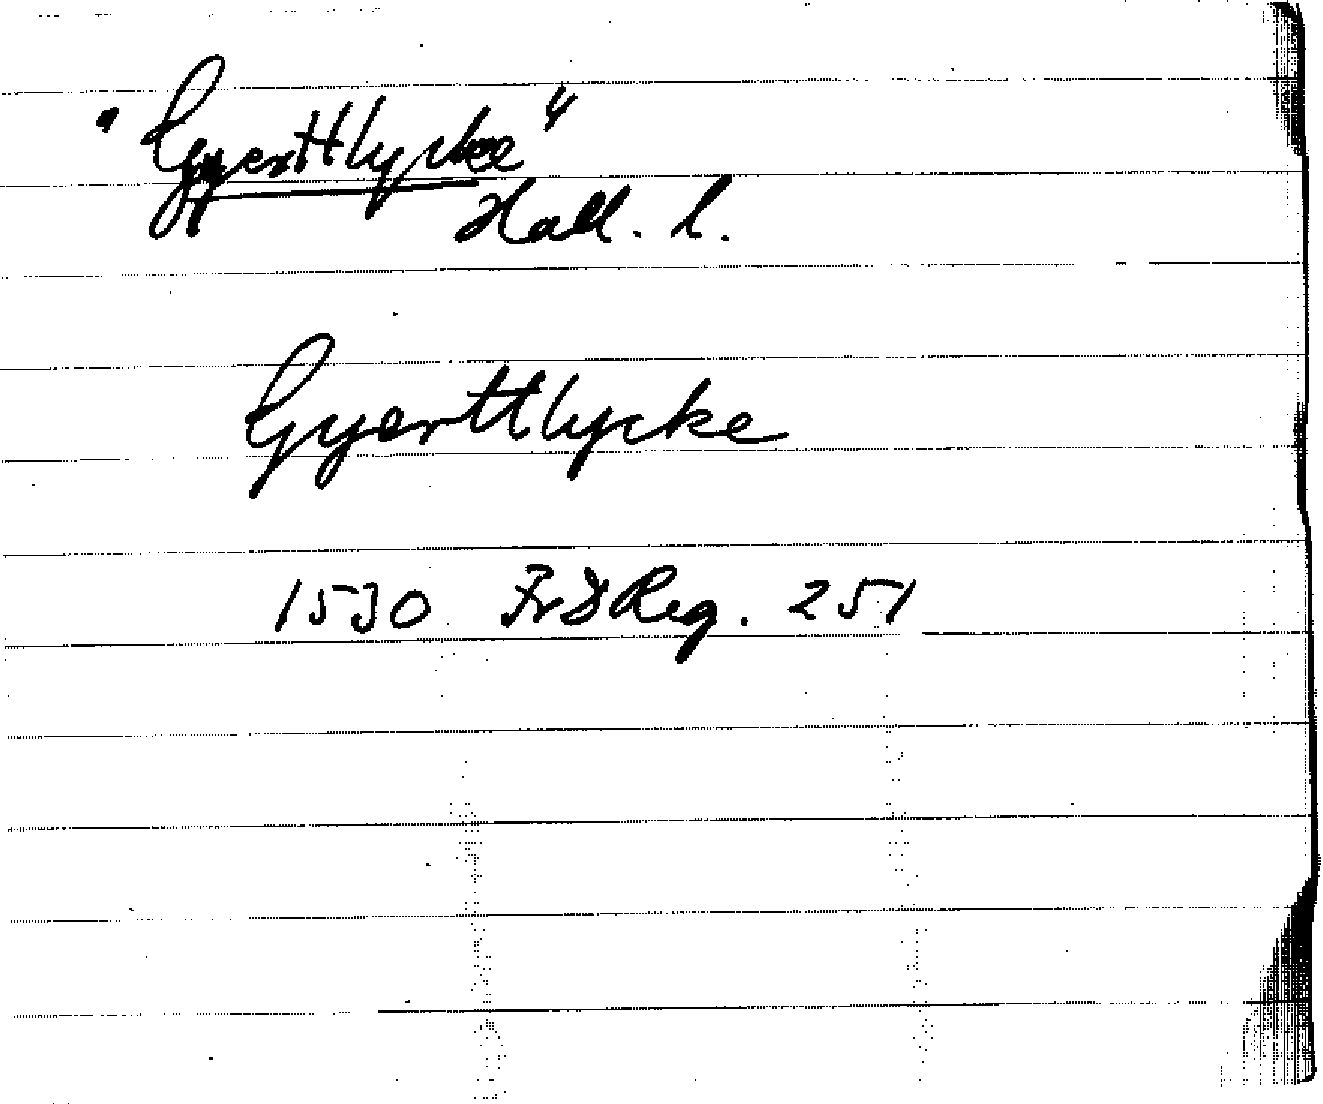 "Gyerttlycke"
Hall. l.
Gyerttlycke
1530 FrdReg. 251